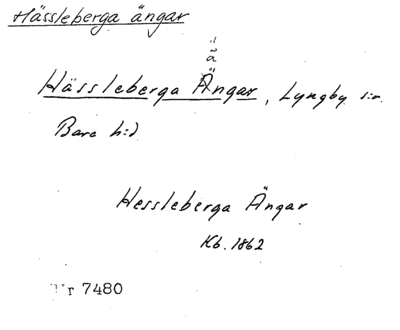 Hässleberga ängar
Hässleberga Ängar, Lyngby sn.
Bara hd
Hessleberga Ängar
Kb. 1862
Nr 7480